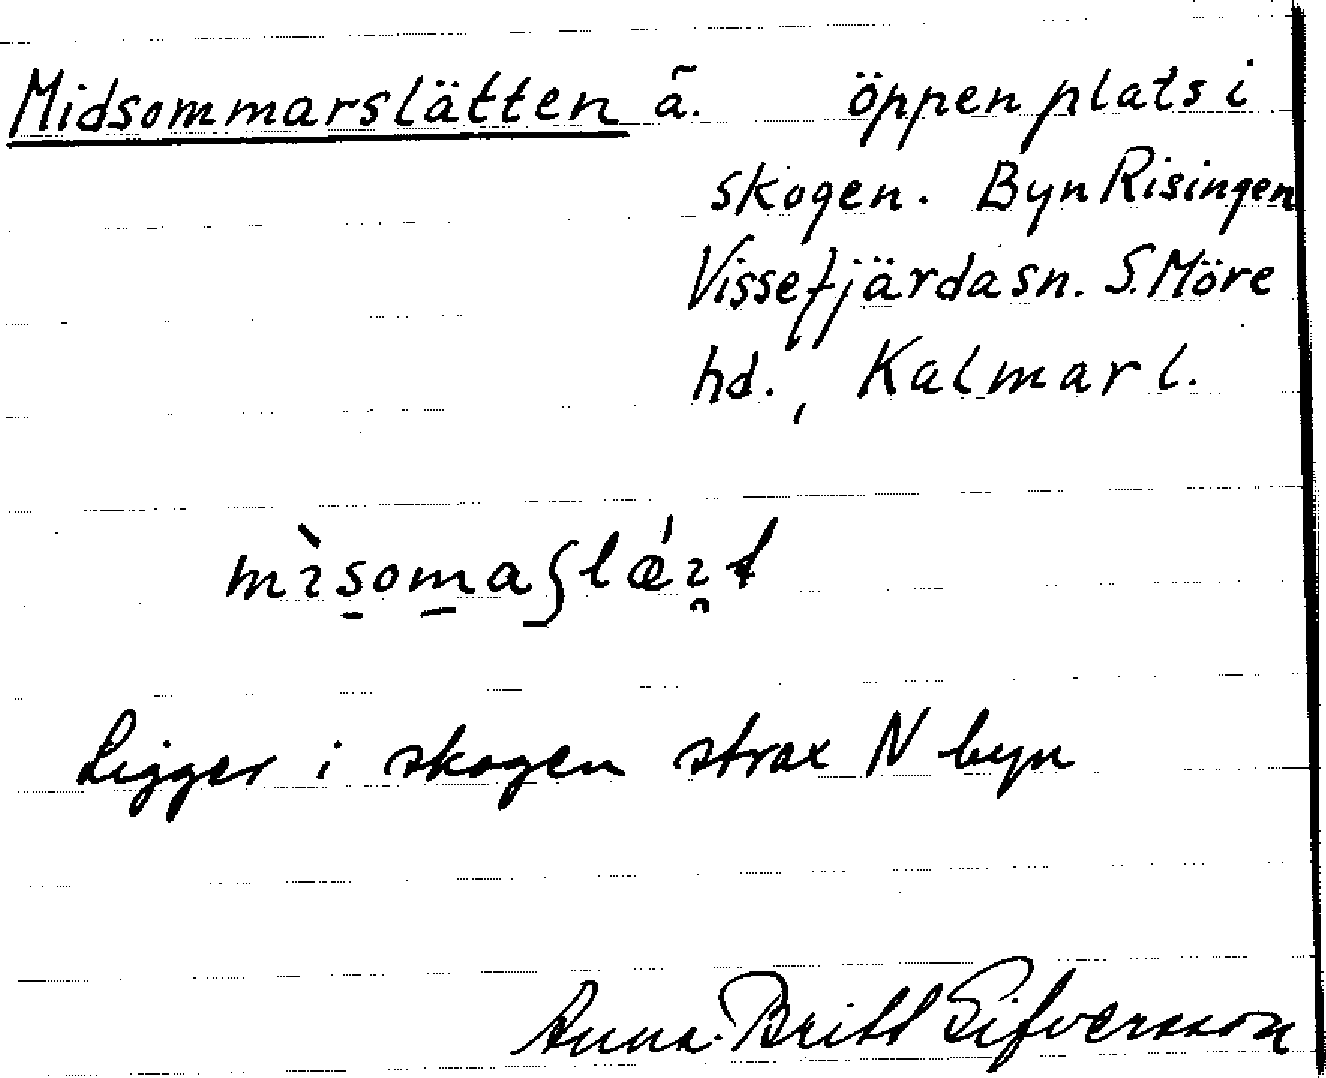 Midsommarslätten ä. öppen plats i
skogen. Byn Risingen
Vissefjärda sn. S. Möre
hd., Kalmar l.
Ligger i skogen strax N byn
Anna-Britt Sifversson